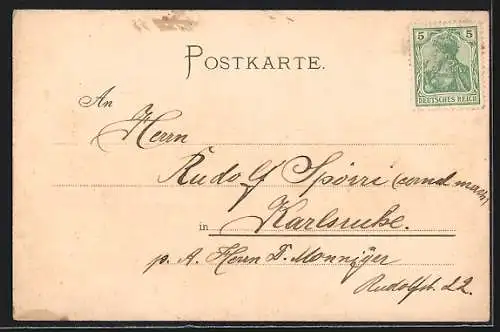 POSTKARTE.
5 5
DEUTSCHES REICH
An
Herrn
Rudolf Spörri (cand. mach)
in Karlsruhe.
p. A. Herrn D. Monniger
Rudolfstr. 22.